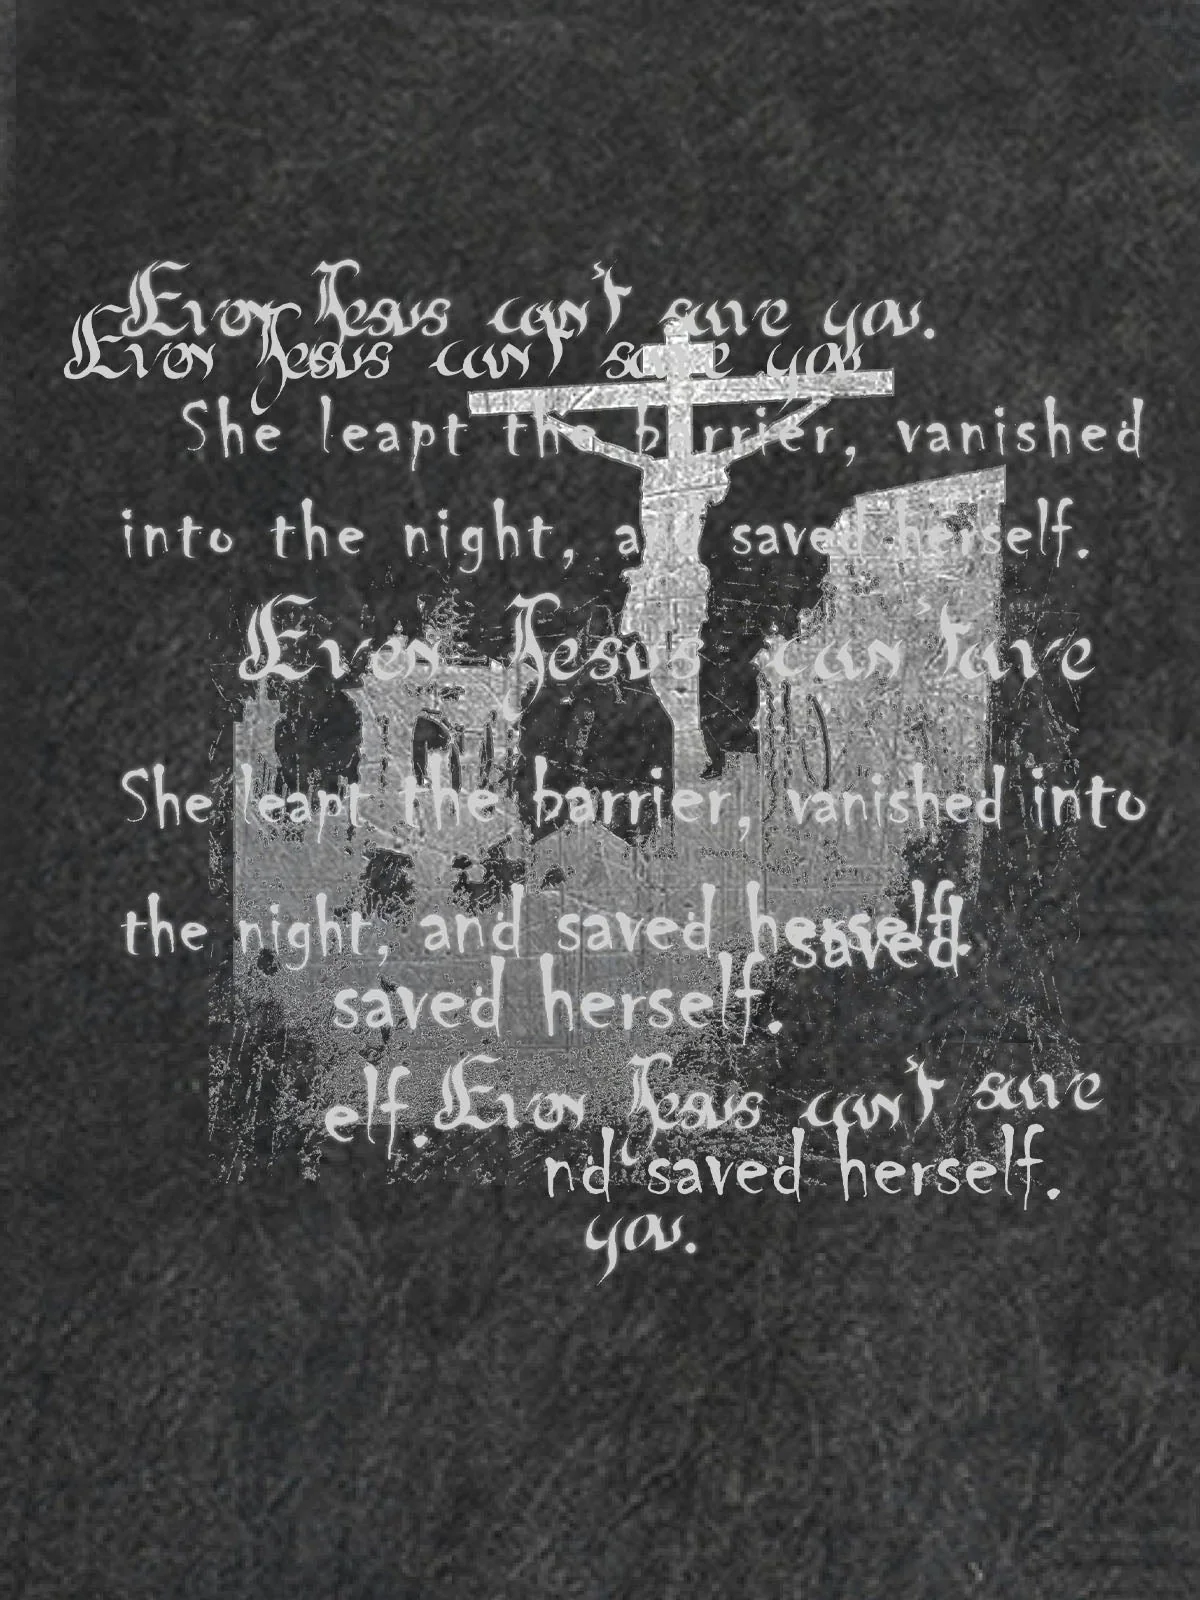 Even Jesus can't save you.
Even Jesus can't save you
She leapt the barrier, vanished
into the night, and saved herself.
Even Jesus can't ave
She leapt the barrier, vanished into
the night, and saved herself.
saved
saved herself.
elf. Even Jesus can't save
nd saved herself.
you.